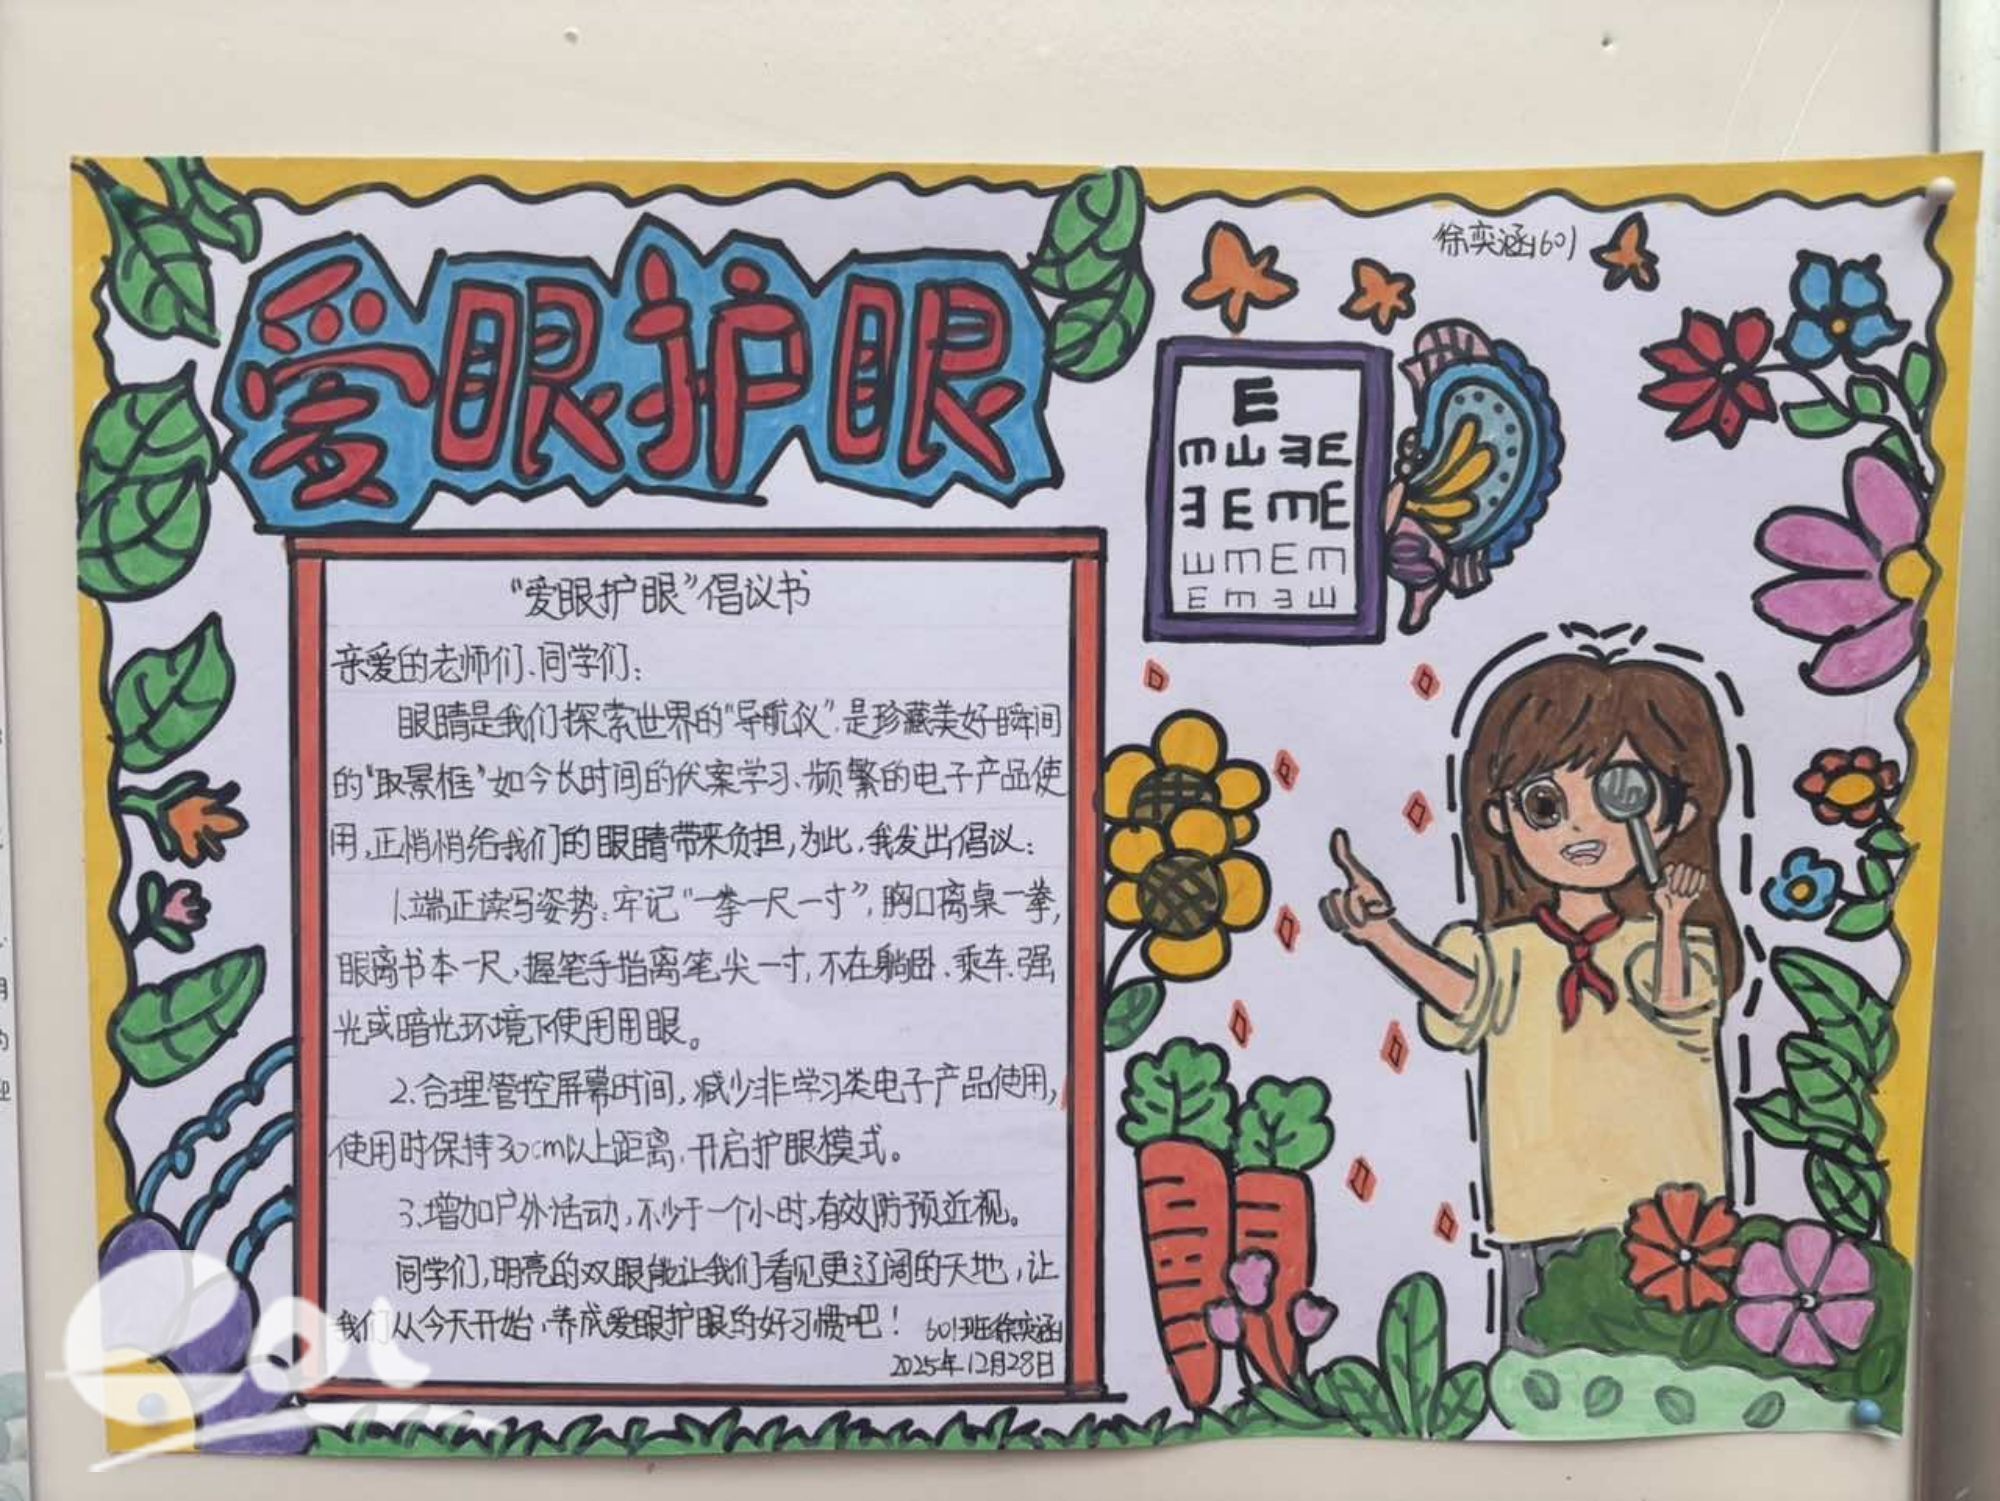 爱眼护眼
徐奕涵601
E
E
"爱眼护眼"倡议书
亲爱的老师们、同学们:
眼睛是我们探索世界的"导航仪",是珍藏美好瞬间
的"取景框"如今长时间的伏案学习、频繁的电子产品使
用,正悄悄给我们的眼睛带来负担,为此,我发出倡议:
1.端正读写姿势:牢记"一拳一尺一寸",胸口离桌一拳,
眼离书本一尺,握笔手指离笔尖一寸,不在躺卧、乘车、强
光或暗光环境下使用用眼。
2.合理管控屏幕时间,减少非学习类电子产品使用,
使用时保持30cm以上距离,开启护眼模式。
3.增加户外活动,不少于一个小时,有效防预近视。
同学们,明亮的双眼能让我们看见更辽阔的天地,让
我们从今天开始,养成爱眼护眼的好习惯吧!
601班徐奕涵
2025年12月28日